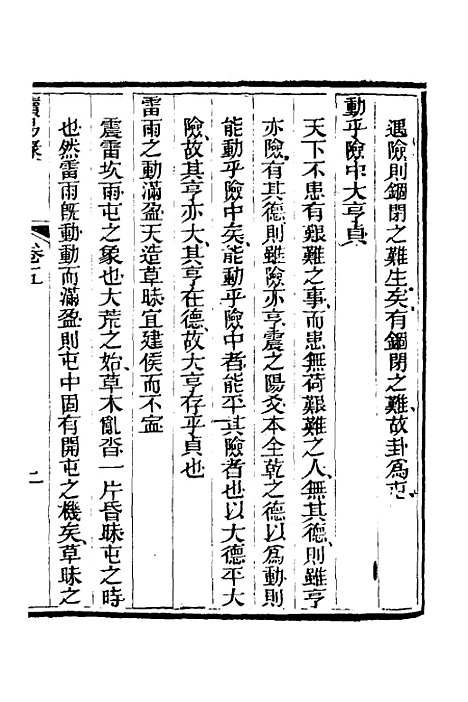 遇險則錮閉之難生矣有錮閉之難故卦爲屯
動乎險中大亨貞
天下不患有艱難之事而患無荷艱難之人無其德則雖亨
亦險有其德則雖險亦亨震之陽爻本全乾之德以爲動則
能動乎險中矣能動乎險中者能平其險者也以大德平大
險故其亨亦大其亨在德故大亨存乎貞也
雷雨之動滿盈天造草昧宜建侯而不寍
震雷坎雨屯之象也大荒之始草木亂沓一片昏昧屯之時
也然雷雨旣動動而滿盈則屯中固有開屯之機矣草昧之
讀易錄
卷二五
二